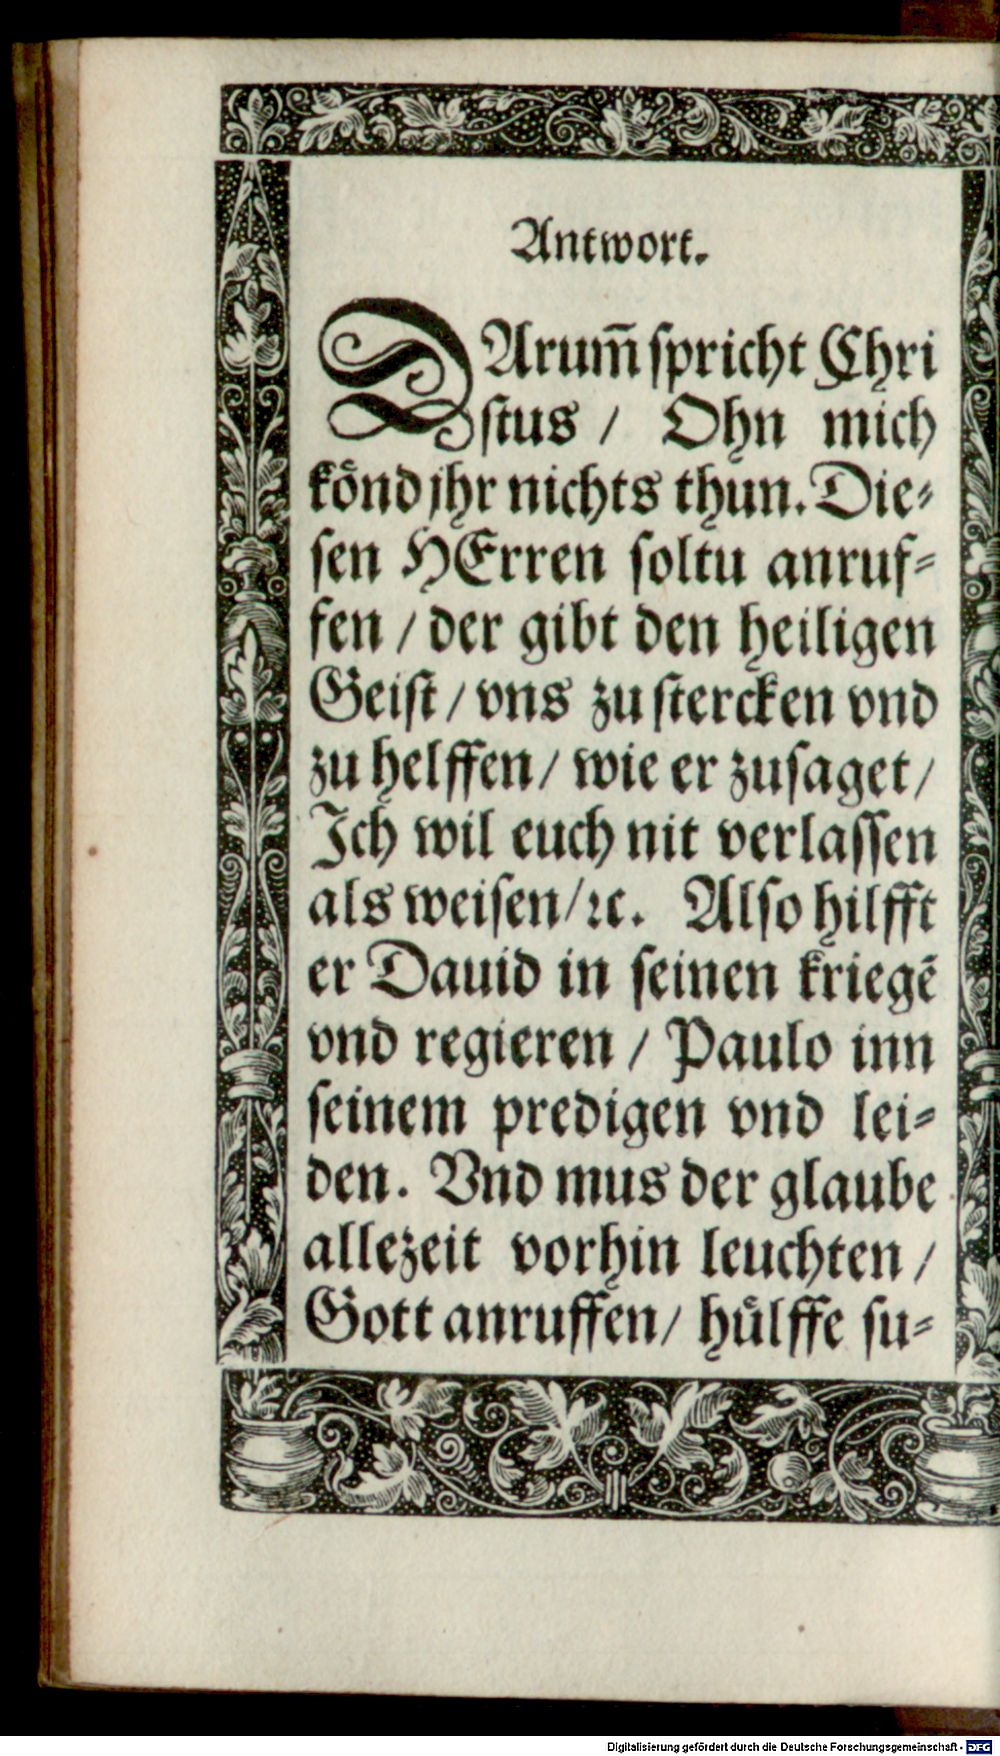 Antwort.
DArum̄ spricht Chri
stus / Ohn mich
koͤnd jhr nichts thun. Die⸗
sen HErren soltu anruf⸗
fen / der gibt den heiligen
Geist / vns zu stercken vnd
zu helffen / wie er zusaget /
Ich wil euch nit verlassen
als weisen / ꝛc. Also hilfft
er Dauid in seinen kriegē
vnd regieren / Paulo inn
seinem predigen vnd lei⸗
den. Vnd mus der glaube
allezeit vorhin leuchten /
Gott anruffen / huͤlffe su⸗
Digitalisierung gefördert durch die Deutsche Forschungsgemeinschaft - DFG